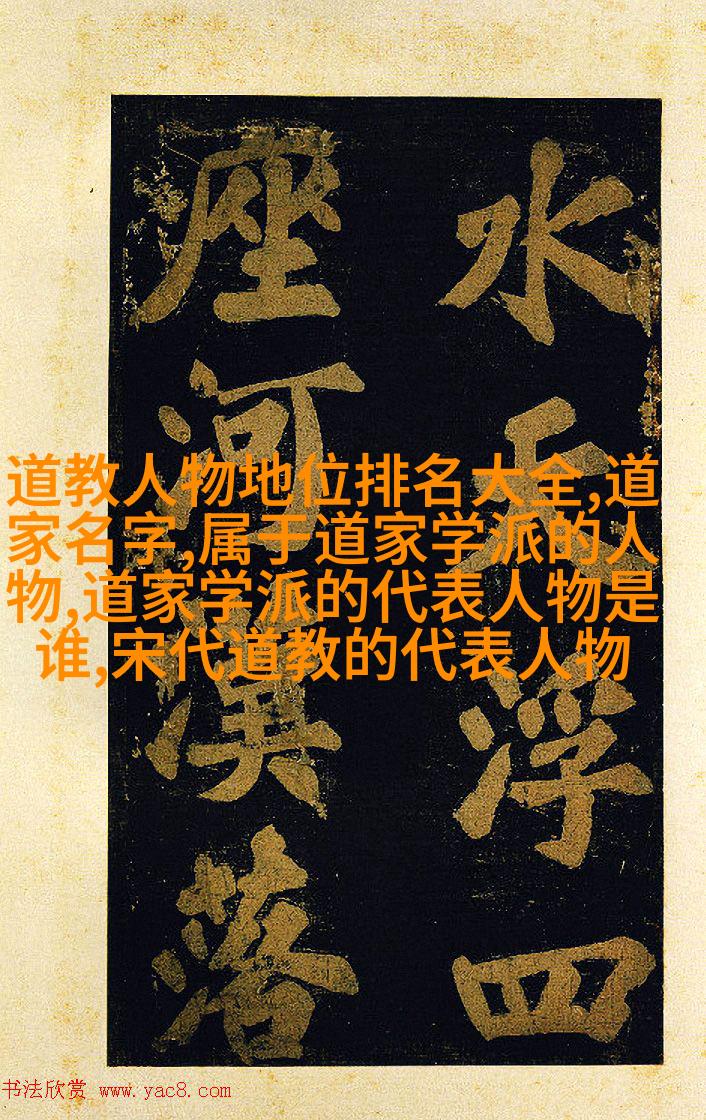 水天浮四
座河漢落
道教人物地位排名大全,道
家名字,属于道家学派的人
物,道家学派的代表人物是
谁,宋代道教的代表人物
书法欣赏 www.yac8.com